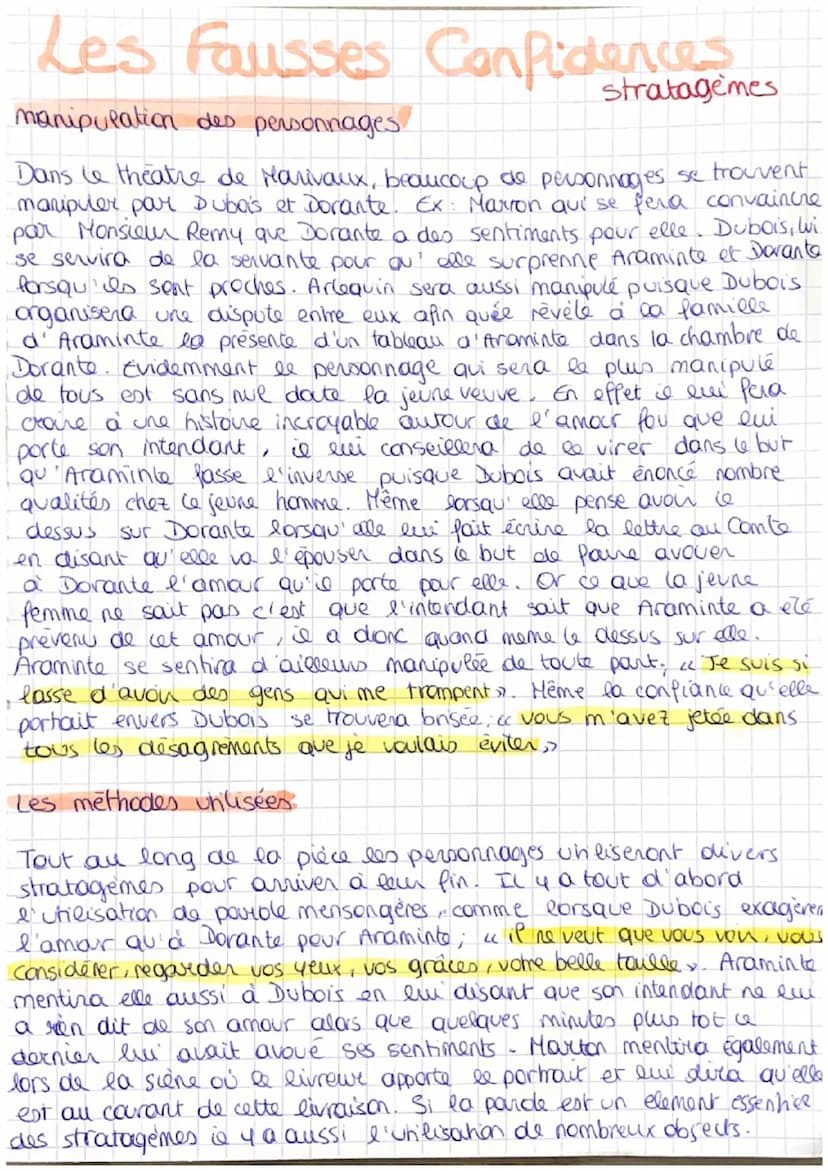 Les Fausses Confidences
stratagèmes
manipulation des personnages
Dans le théatre de Marivaux, beaucoup de personnages se trouvent
manipuler par Dubois et Dorante. Ex : Marton qui se fera convaincre
par Monsieur Remy que Dorante a des sentiments pour elle. Dubois, lui
se servira de la servante pour qu'elle surprenne Araminte et Dorante
lorsqu'ils sont proches. Arlequin sera aussi manipulé puisque Dubois
organisera une dispute entre eux afin quée révèle à la famille
d'Araminte la présente d'un tableau d'Araminte dans la chambre de
Dorante. Evidemment le personnage qui sera le plus manipulé
de tous est sans nul doute la jeune veuve. En effet il lui fera
croire à une histoire incroyable autour de l'amour fou que lui
porte son intendant, il lui conseillera de le virer dans le but
qu'Araminte fasse l'inverse puisque Dubois avait énoncé nombre
qualités chez le jeune homme. Même lorsqu'elle pense avoir le
dessus sur Dorante lorsqu'elle lui fait écrire la lettre au Comte
en disant qu'elle va l'épouser dans le but de faire avouer
à Dorante l'amour qu'il porte pour elle. Or ce que la jeune
femme ne sait pas c'est que l'intendant sait que Araminte a été
prévenu de cet amour, il a donc quand meme le dessus sur elle.
Araminte se sentira d'ailleurs manipulée de toute part; « Je suis si
lasse d'avoir des gens qui me trompent ». Même la confiance qu'elle
portait envers Dubois se trouvera brisée; « vous m'avez jetée dans
tous les désagréments que je voulais éviter »
Les méthodes utilisées
Tout au long de la pièce les personnages utiliseront divers
stratagèmes pour arriver à leur fin. Il y a tout d'abord
l'utilisation de parole mensongères, comme lorsque Dubois exagèrer
l'amour qu'à Dorante pour Araminte; « il ne veut que vous voir, vous
considérer, regarder vos yeux, vos grâces, votre belle taille ». Araminte
mentira elle aussi à Dubois en lui disant que son intendant ne lui
a rien dit de son amour alors que quelques minutes plus tot ce
dernier lui avait avoué ses sentiments. Marton mentira également
lors de la scène où le livreur apporte le portrait et lui dira qu'elle
est au courant de cette livraison. Si la parole est un element essentiel
des stratagèmes il y a aussi l'utilisation de nombreux objects.